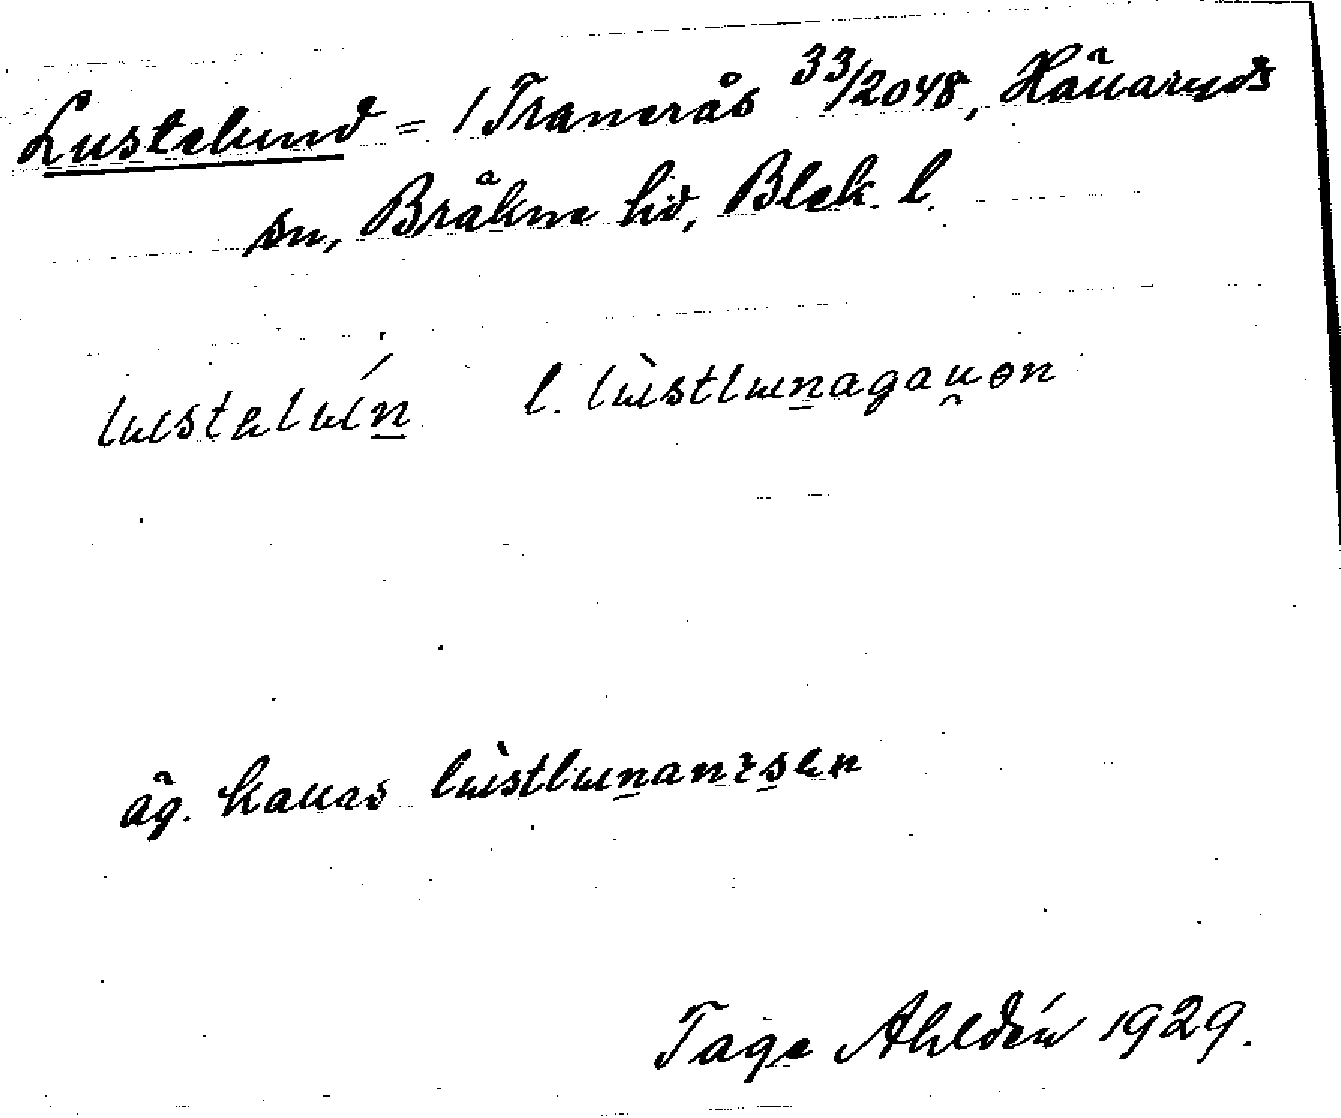 Lustelund = 1 Tranerås 33/2048, Hällaryds
sn, Bräkne hd, Blek. l.
lustelún l. lùstlunagaƞən
äg. kallas lùstlunanꝛsen
Tage Ahldén 1929.